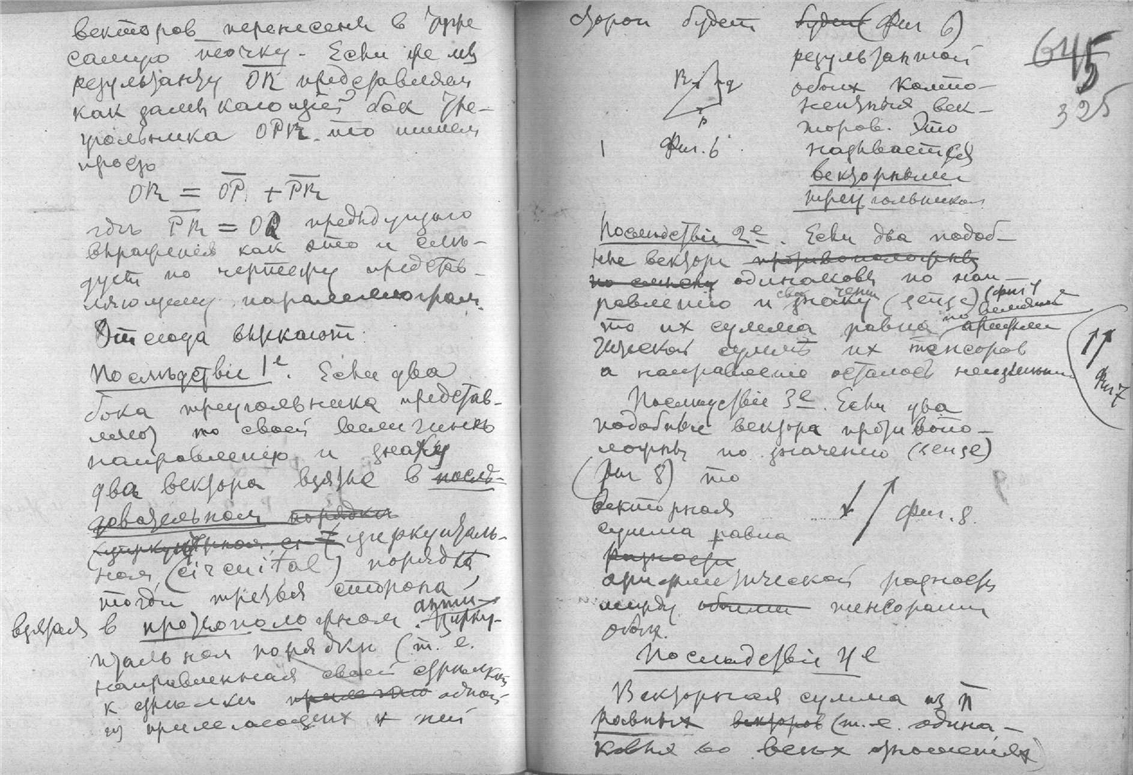 векторов перенесены в другую
самую точку. Если же мы
результанту OR представляем
как замыкающий бок тре-
угольника OPR то пишем
просто
OR = OP + PR
гдѣ PR = OQ предыдущаго
выраженія как это и слѣ-
дует по чертежу представ-
ляющему параллелограм.
Отсюда вытекают.
Послѣдствіе 1е. Если два
бока треугольника представ-
ляют по своей величинѣ
направленію и знаку
два вектора взятые в послѣ-
довательном порядкѣ
циркуиталь-
ном (circuital) порядкѣ
тогда третья сторона
взятая в противоположном анти-цирку-
итальном порядкѣ (т. е.
направленная своей стрѣлкой
к стрѣлкѣ одной
из прилегающих к ней
сторон будет (Фиг 6)
результантой
обоих компо-
нентных век-
торов. Это
называется
векторным
треугольником
R q
p
Фиг. 6
645
325
Послѣдствіе 2е. Если два подоб-
ные векторы противоположны
одинаковы по нап-
равленію и знаку (sense) (фиг 7
то их сумма равна по величинѣ арифме-
тической суммѣ их тензоров
а направленіе осталось неизменным
Фиг 7
Послѣдствіе 3е. Если два
подобные вектора противопо-
ложны по значению (sense)
(фиг 8) то
векторная
сумма равна
разности
арифметической разности
между обоими тензорами
обоих.
Фиг. 8.
Послѣдствіе 4е
Векторная сумма из n
равных векторов (т. е. одина-
ковых во всех отношениях)